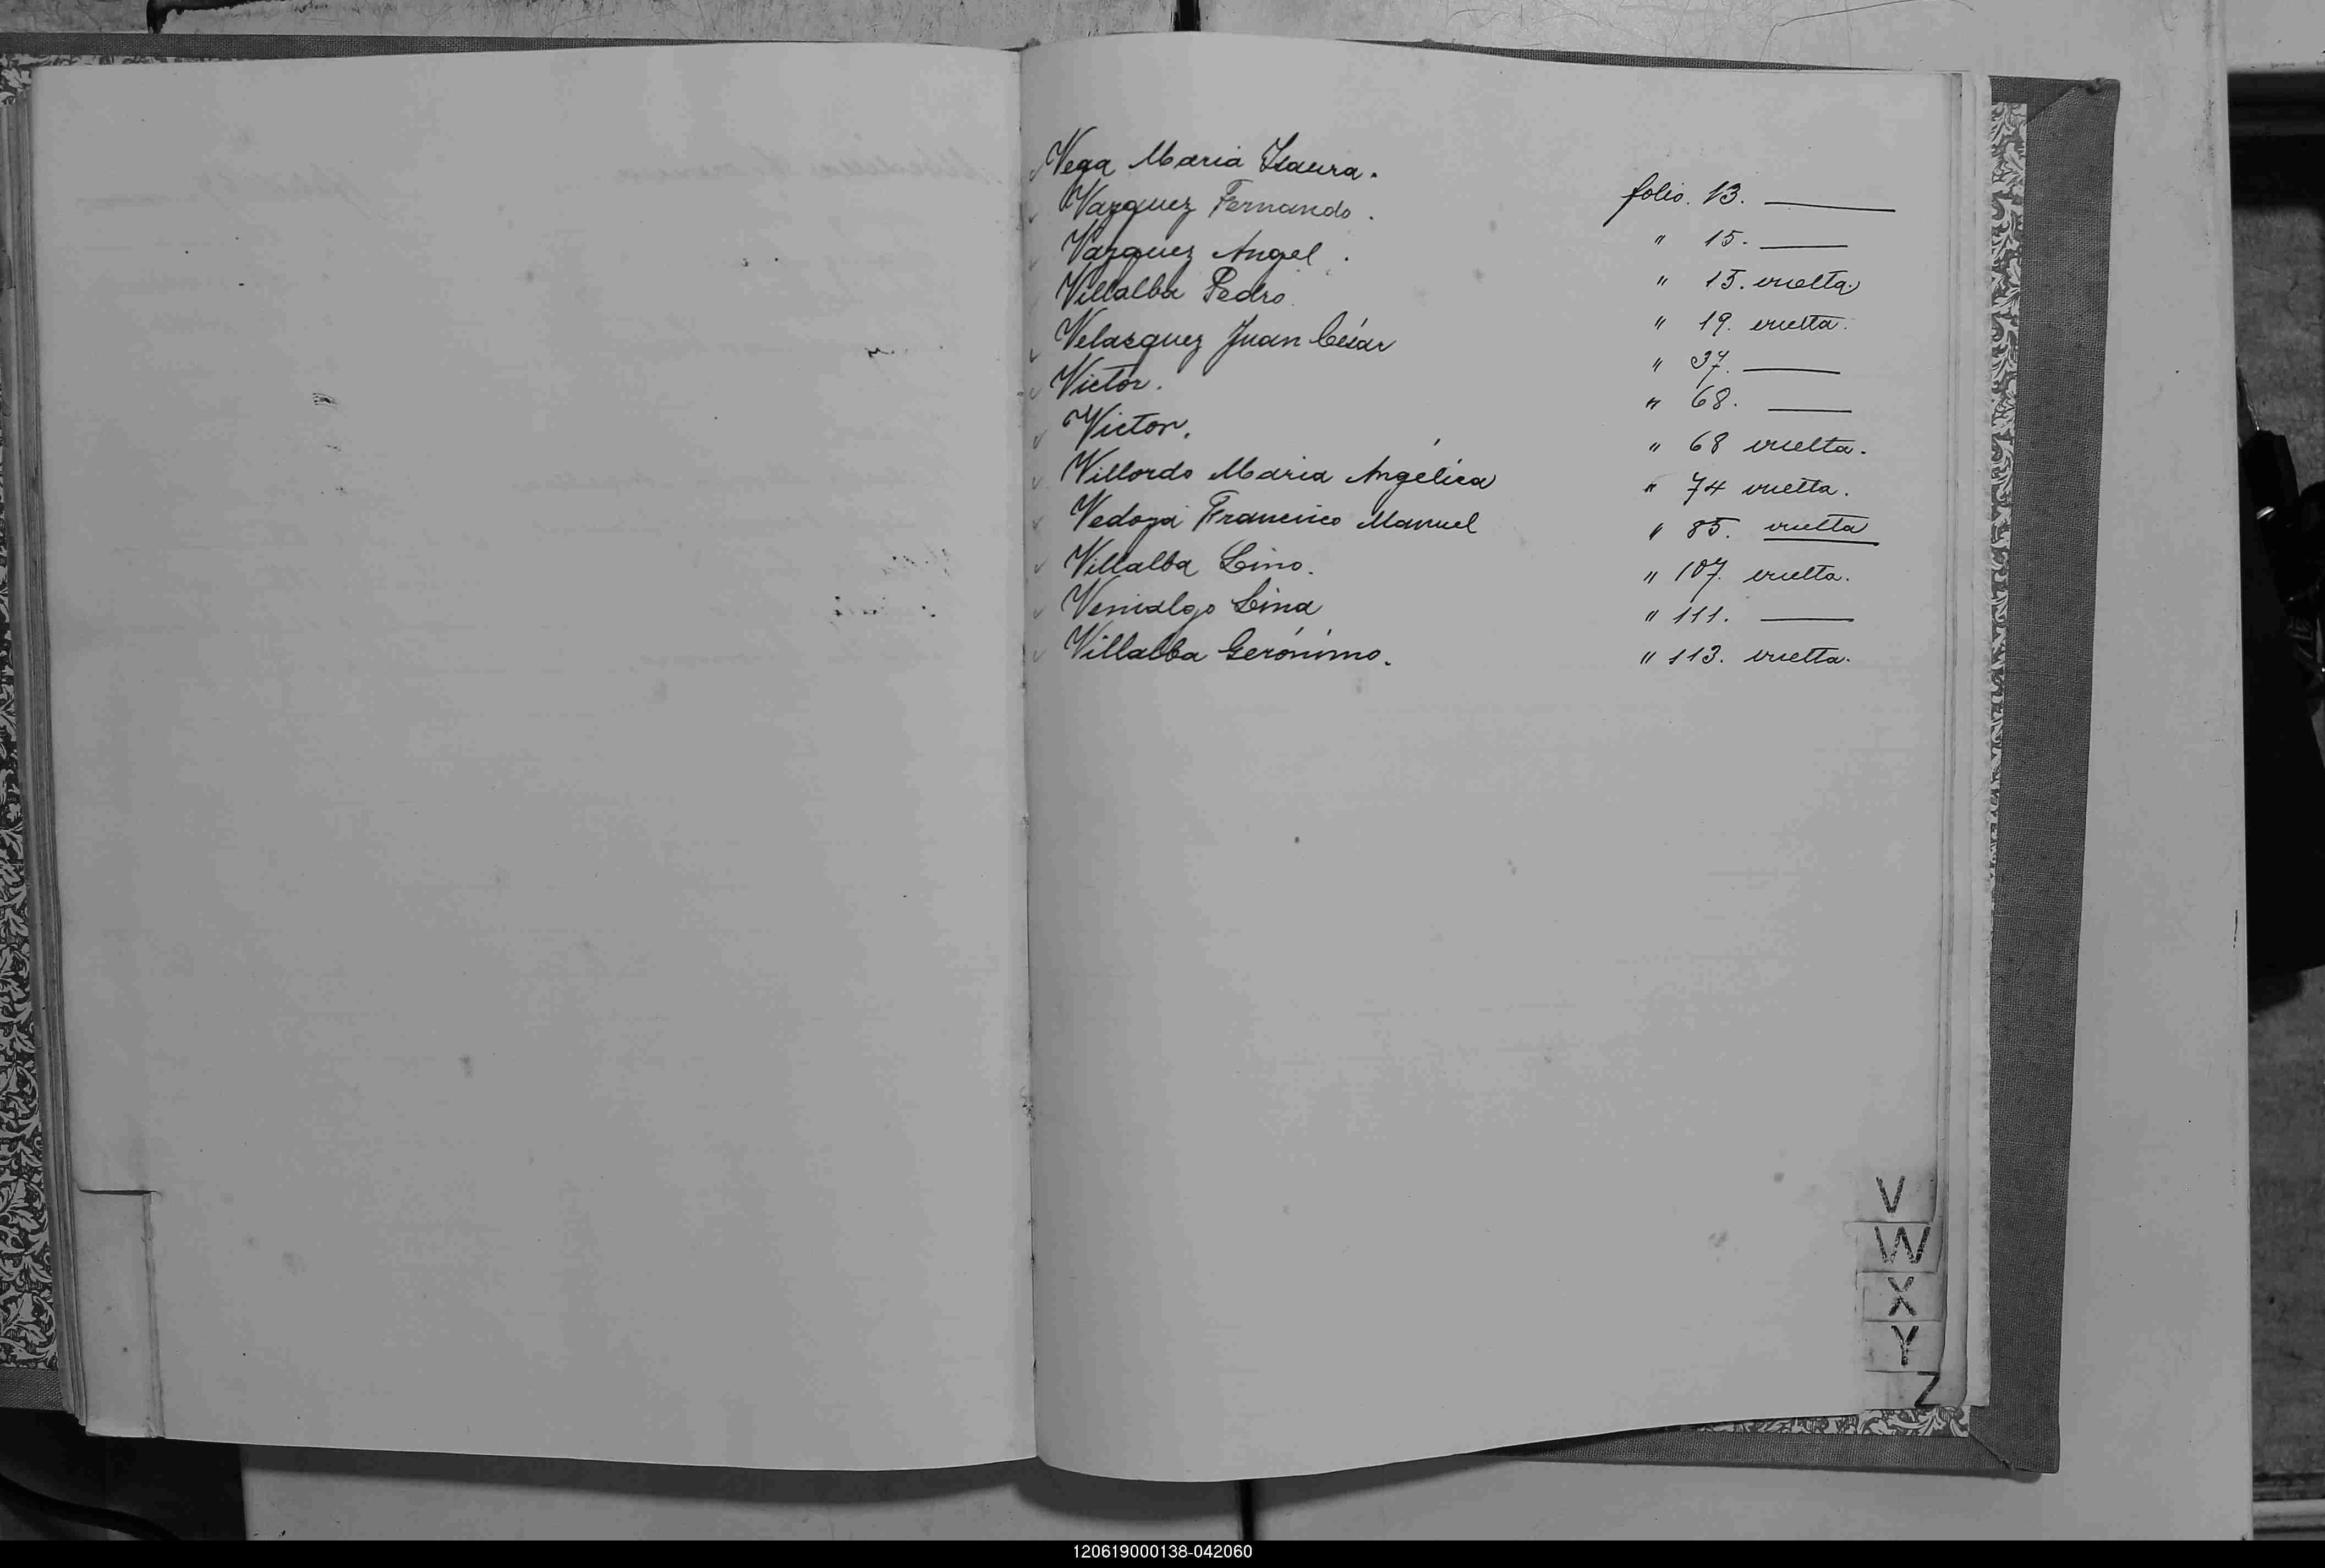 Vega Maria Isaura. folio. 13.
Vazquez Fernando. " 15.
Vazquez Angel. " 15. vuelta.
Villalba Pedro. " 19. vuelta.
Velasquez Juan César " 37.
Victor. " 68.
Victor. " 68 vuelta.
Villordo Maria Angélica " 74 vuelta.
Vedoya Francisco Manuel " 85. vuelta
Villalba Lino. " 107. vuelta.
Venialgo Lina " 111.
Villalba Gerónimo. " 113. vuelta.
V
W
X
Y
Z
120619000138-042060